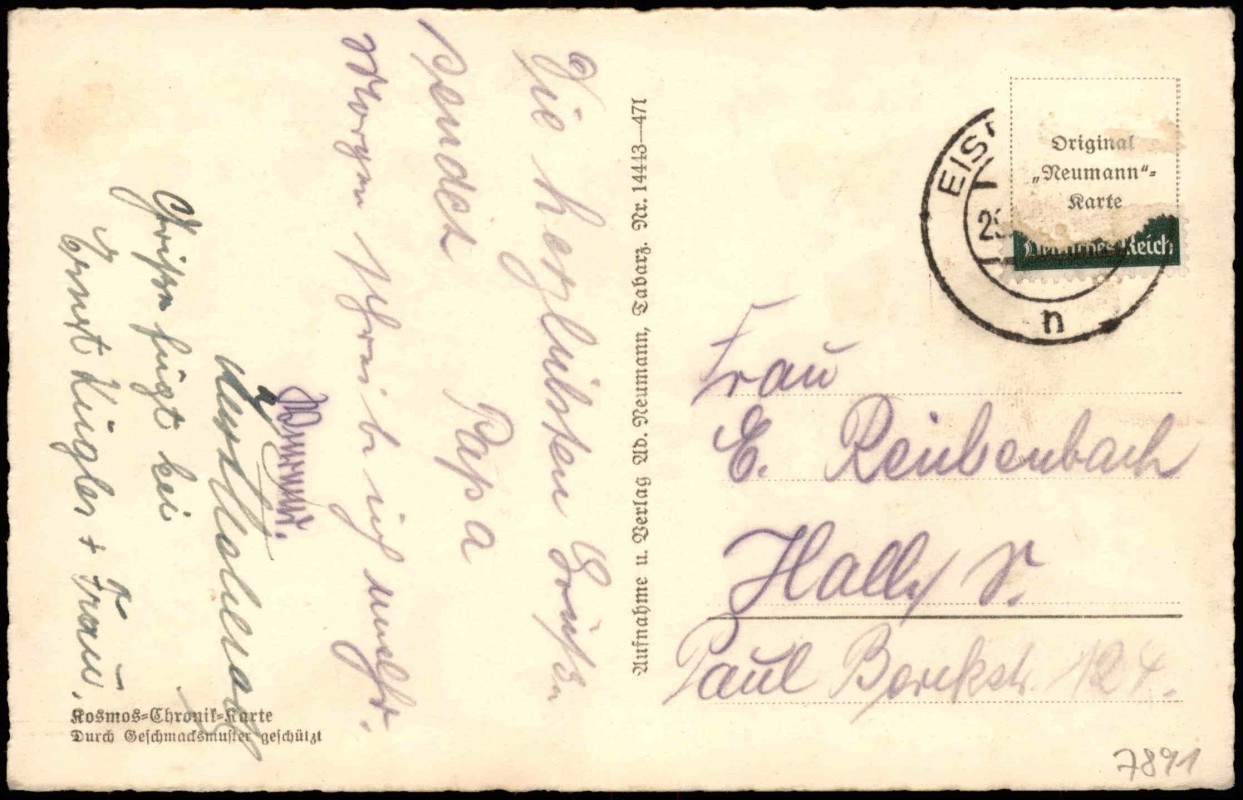 Die herzlichsten Grüße
sendet
Papa
Morgen schreib ich mehr.
Grüße fügt bei
Ernst Kügler + Frau.
Kosmos=Chronik=Karte
Durch Geschmacksmuster geschützt
Aufnahme u. Verlag Ad. Neumann, Tabarz. Nr. 14443—471
Original
„Neumann“=
Karte
Deutsches Reich
EIS
n
Frau
E. Reichenbach
Halle S.
Paul Berckstr. 124.
7891